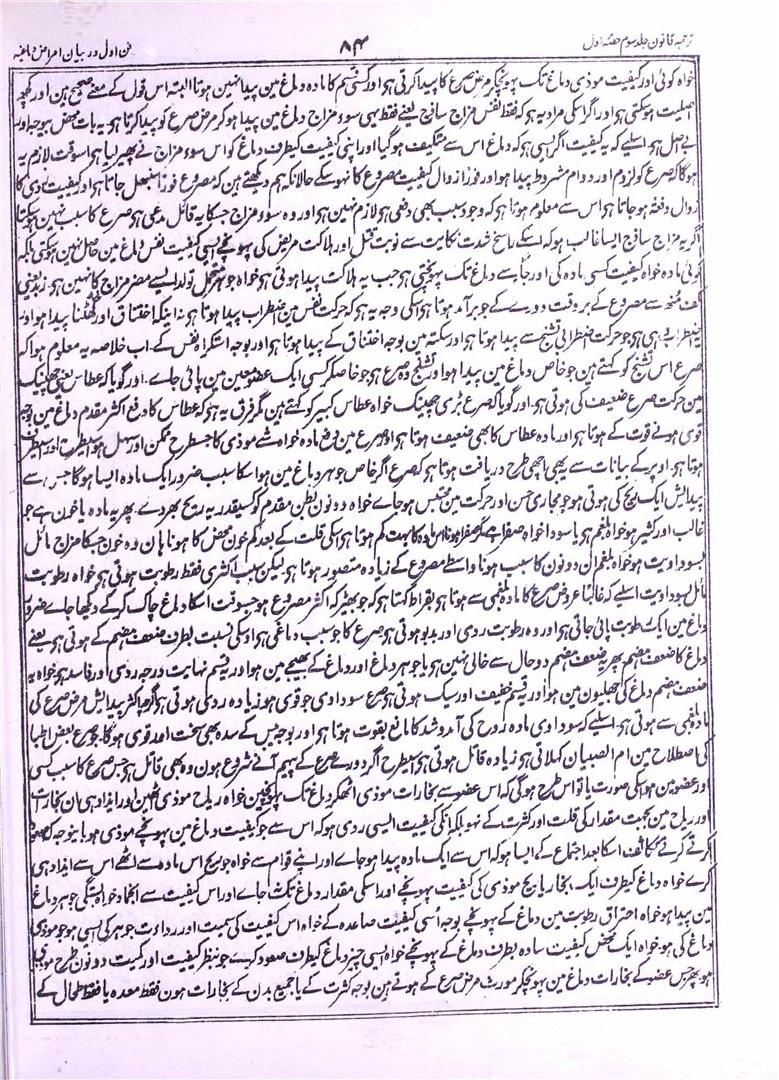 ترجمہ قانون جلد سوم حصّہ اول
۸۴
فن اول در بیان امراض دماغیہ
خواہ کوئی اور کیفیت موذی دماغ تک پہونچکر مرض صرع کا پیدا کرتی ہو اور کسی قسم کا مادہ دماغ مین پیدا نہین ہوتا البتہ اس قول کے معنے صحیح ہین اور کچھ
اصلیت ہوسکتی ہو اور اگر اسکی مراد یہ ہو کہ فقط نفس مزاج ساذج یعنے فقط یہی سوء مزاج دماغ مین پیدا ہو کر مرض صرع کو پیدا کرتا ہو یہ بات محض بیوجہ اور
بے اصل ہو اسلیے کہ یہ کیفیت اگر ایسی ہو کہ دماغ اس سے متکیف ہوگیا اور اپنی کیفیت کیطرف دماغ کو اس سوء مزاج نے پھیر لیا ہو اسوقت لازم یہ
ہوگا کہ صرع کو لزوم اور دوام مشروط پیدا ہو اور فوراً زوال کیفیت مصروع کا نہوسکے حالانکہ ہم دیکھتے ہین کہ مصروع فوراً سنبھل جاتا ہو اور کیفیت ردی کا
زوال دفعتہً ہوجاتا ہو اس سے معلوم ہوتا ہو کہ وجود سبب بھی دفعی ہو لازم نہین ہو اور وہ سوء مزاج جسکا یہ قائل مدعی ہو صرع کا سبب نہین ہوسکتا
اگر یہ مزاج ساذج ایسا غالب ہو کہ اسکے راسخ شدت نکایت سے نوبت قتل اور ہلاکت مریض کی پہونچے ایسی کیفیت نفس دماغ مین حاصل نہین ہوسکتی بلکہ
کوئی مادہ خواہ کیفیت کسی مادہ کی اور جاے سے دماغ تک پہونچتی ہو جب یہ ہلاکت پیدا ہوتی ہو خواہ جوہر تولد ایسے مضر مزاج کا نہین ہو زبد یعنی
کف منھ سے مصروع کے بروقت دورے کے جو برآمد ہوتا ہو اسکی وجہ یہ ہو کہ حرکت نفس مین اضطراب پیدا ہوتا ہو نہ اینکہ اختناق اور گھٹنا پیدا ہو اور
اضطراب ہی ہو جو حرکت اضطرابی تشنج سے پیدا ہوتا ہو اور سکتہ مین بوجہ اختناق کے پیدا ہوتا ہو اور بوجہ استکراہ نفس کے۔ اب خلاصہ یہ معلوم ہوا کہ
صرع اس تشنج کو کہتے ہین جو خاص دماغ مین پیدا ہوا اور تشنج وہ صرع ہو جو خاصکر کسی ایک عضو معین مین پائی جاے۔ اور گویا کہ عطاس یعنی چھینک
مین حرکت صرع ضعیف کی ہوتی ہو۔ اور گویا کہ صرع بڑی چھینک خواہ عطاس کبیر کو کہتے ہین مگر فرق یہ ہو کہ عطاس کا دفع اکثر مقدم دماغ مین بوجہ
قوی ہونے قوت کے ہوتا ہو اور مادہ عطاس کا بھی ضعیف ہوتا ہو اور صرع مین دفع مادہ خواہ شے موذی کا جسطرح ممکن اور سہل ہو اسیطرح اور اسیطرف
ہوتا ہو۔ اوپر کے بیانات سے یہ بھی اچھی طرح دریافت ہوتا ہو کہ صرع اگر خاص جوہر دماغ مین ہو اسکا سبب ضرور ایک مادہ ایسا ہوگا جس سے
پیدایش ایک ریح کی ہوتی ہو جو مجاری حس اور حرکت مین محتبس ہوجاے خواہ دونون بطن مقدم کو کسیقدر یہ ریح بھر دے۔ پھر یہ مادہ یا خون ہے جو
غالب اور کثیر ہو خواہ بلغم ہو یا سودا خواہ صفرا ہے مگر صفرا ہونا اس مادہ کا بہت کم ہوتا ہو اسکی قلت کے بعد کم خون محض کا ہونا ہان وہ خون جسکا مزاج مائل
بسوداویت ہو خواہ بلغم ان دونون کا سبب ہونا واسطے مصروع کے زیادہ متصور ہوتا ہو لیکن سبب اکثری فقط رطوبت ہوتی ہو خواہ رطوبت
مائل بسوداویت اسلیے کہ غالباً عروض صرع کا مادہ بلغمی سے ہوتا ہو بقراط کہتا ہو کہ جو بھیڑ کہ اکثر مصروع ہو جسوقت اسکا دماغ چاک کرکے دیکھا جاے ضرور
دماغ مین ایک رطوبت پائی جاتی ہو اور وہ رطوبت ردی اور بدبو ہوتی ہو صرع کا جو سبب دماغی ہو اوسکی نسبت بطرف ضعف ہضم کے ہوتی ہو یعنے
دماغ کا ضعف ہضم پھر یہ ضعف ہضم دو حال سے خالی نہین ہو یا جوہر دماغ اور دماغ کے بھیجے مین ہو اور یہ قسم نہایت درجہ ردی اور فاسد ہو خواہ یہ
ضعف ہضم دماغ کی جھلیون مین ہو اور یہ قسم خفیف اور سبک ہوتی ہو صرع سوداوی جو قوی ہو زیادہ ردی ہوتی ہو اگرچہ اکثر پیدایش مرض صرع کی
مادہ بلغمی سے ہوتی ہو۔ اسلیے کہ سوداوی مادہ روح کی آمد و شد کا مانع بقوت ہوتا ہو اور بوجہ یبس کے سدہ بھی سخت اور قوی ہوگا۔ جو صرع بعض اطبا
کی اصطلاح مین ام الصبیان کہلاتی ہو زیادہ قاتل ہوتی ہو اسیطرح اگر دورے صرع کے پیہم آنے شروع ہون وہ بھی قاتل ہو جس صرع کا سبب کسی
اور عضو مین ہو اسکی صورت یا تو اس طرح ہوگی کہ اس عضو سے بخارات موذی اٹھکر دماغ تک پہونچین خواہ ریاح موذی اٹھین اور ایذا دہی ان بخارات
اور ریاح مین بجہت مقدار کی قلت اور کثرت کے نہو بلکہ انکی کیفیت ایسی ردی ہو کہ اس سے جو کیفیت دماغ مین پہونچے موذی ہو یا بوجہ
کرتے کرتے تکاثف اسکا بعد اجتماع کے ایسا ہو کہ اس سے ایک مادہ پیدا ہوجاے اور اپنے قوام سے خواہ جو ریح اس مادہ سے اٹھے اس سے ایذا دہی
کرے خواہ دماغ کیطرف ایک بخار یا ریح موذی کی کیفیت پہونچے اور اسکی مقدار دماغ تک نجاے اور اس کیفیت سے انجماد خواہ بستگی جوہر دماغ
مین پیدا ہو خواہ احتراق رطوبت مین دماغ کے پہونچے بوجہ اُسی کیفیت صاعدہ کے خواہ اس کیفیت کی سمیت اور رداءت جوہر کی ایسی ہو جو موذی
دماغ کی ہو۔ خواہ ایک محض کیفیت سادہ بطرف دماغ کے پہونچے خواہ ایسی چیز دماغ کیطرف صعود کرے جو بنظر کیفیت اور کمیت دونون طرح موذی
ہو پھر جس عضو کے بخارات دماغ مین پہونچکر مورث مرض صرع کے ہوتے ہین بوجہ کثرت کے یا جمیع بدن کے بخارات ہون فقط معدہ یا فقط طحال کے